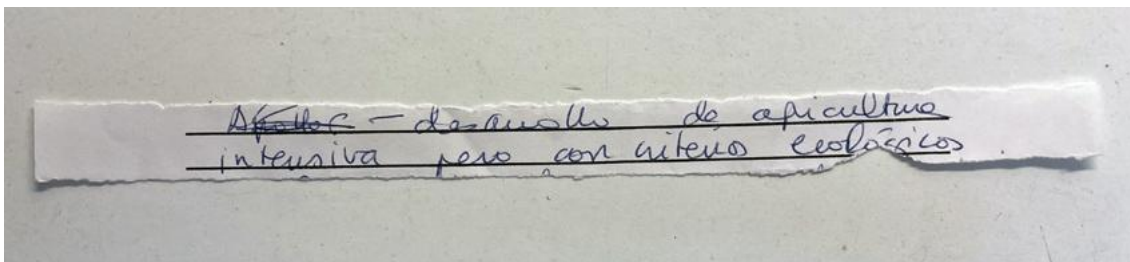 - desarrollo de apicultura
intensiva pero con criterios ecológicos